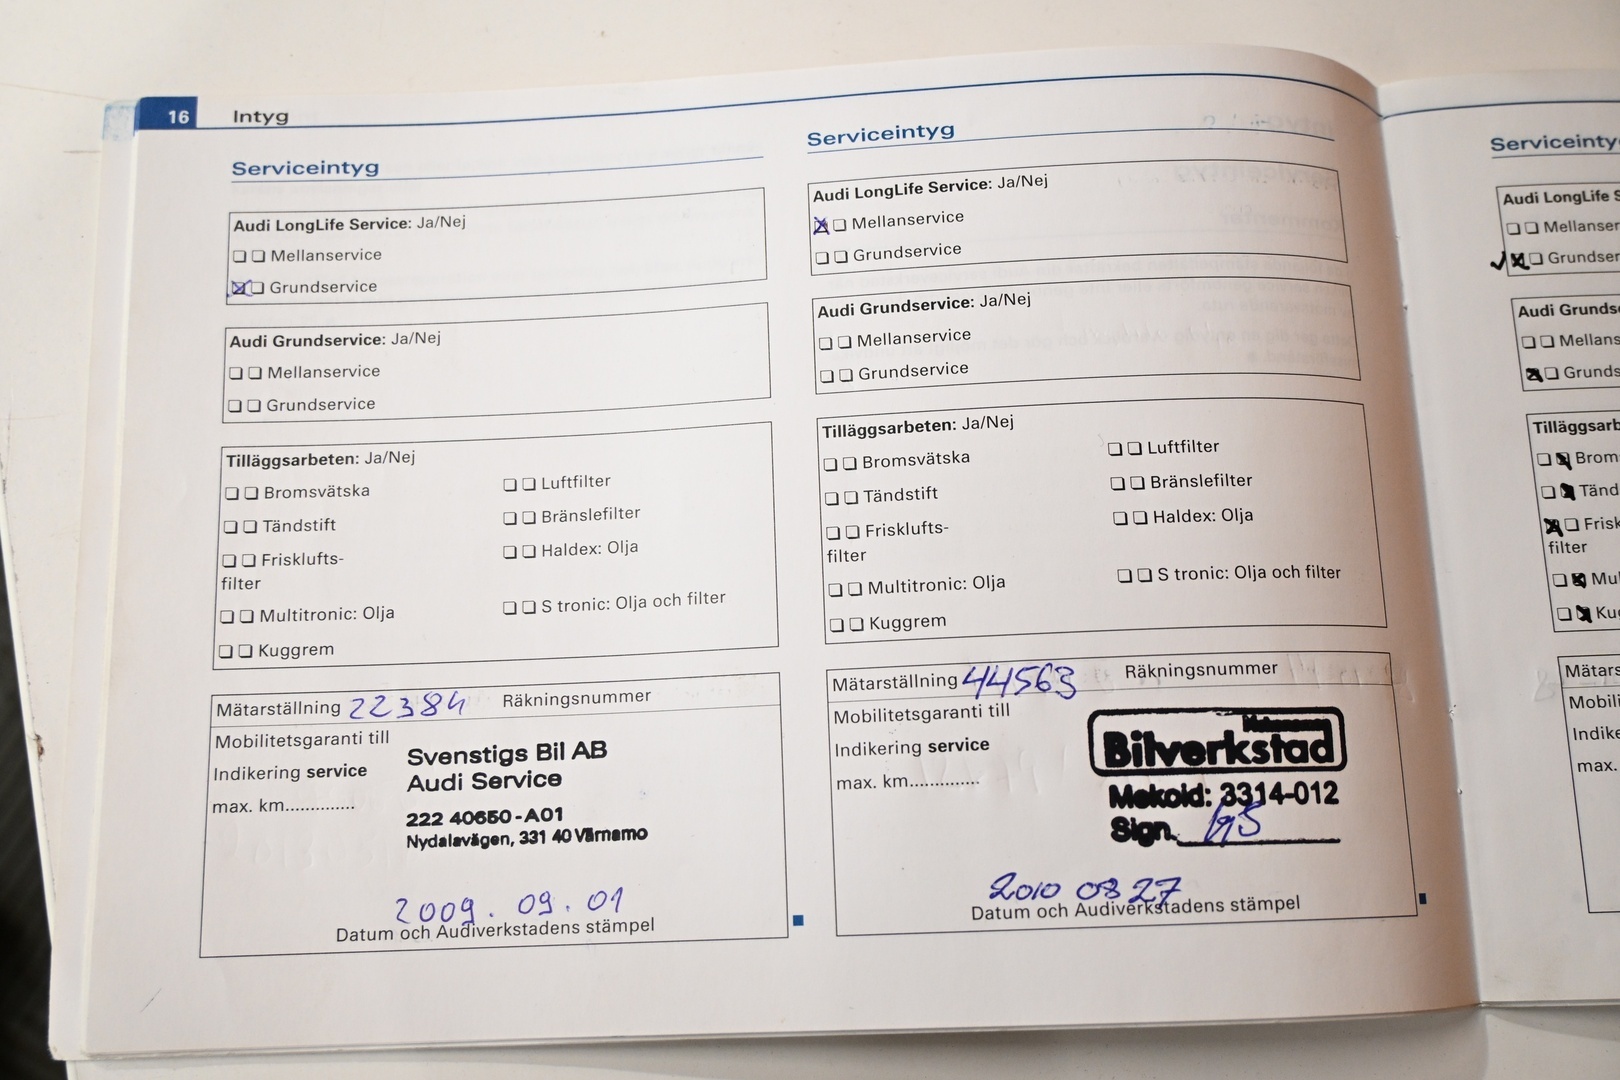 16 Intyg
Serviceintyg
Audi LongLife Service: Ja/Nej
Mellanservice
Grundservice
Audi Grundservice: Ja/Nej
Mellanservice
Grundservice
Tilläggsarbeten: Ja/Nej
Bromsvätska
Tändstift
Frisklufts-
filter
Multitronic: Olja
Kuggrem
Luftfilter
Bränslefilter
Haldex: Olja
S tronic: Olja och filter
Mätarställning 22384 Räkningsnummer
Mobilitetsgaranti till
Indikering service
max. km..............
Svenstigs Bil AB
Audi Service
222 40650-A01
Nydalavägen, 331 40 Värnamo
2009. 09. 01
Datum och Audiverkstadens stämpel
Serviceintyg
Audi LongLife Service: Ja/Nej
Mellanservice
Grundservice
Audi Grundservice: Ja/Nej
Mellanservice
Grundservice
Tilläggsarbeten: Ja/Nej
Bromsvätska
Tändstift
Frisklufts-
filter
Multitronic: Olja
Kuggrem
Luftfilter
Bränslefilter
Haldex: Olja
S tronic: Olja och filter
Mätarställning 44563 Räkningsnummer
Mobilitetsgaranti till
Indikering service
max. km..............
Bilverkstad
Mekoid: 3314-012
Sign.
2010 08 27
Datum och Audiverkstadens stämpel
Serviceinty
Audi LongLife S
Mellanser
Grundser
Audi Grunds
Mellans
Grunds
Tilläggsarb
Brom
Tänd
Frisk
filter
Mul
Ku
Mätars
Mobili
Indike
max.